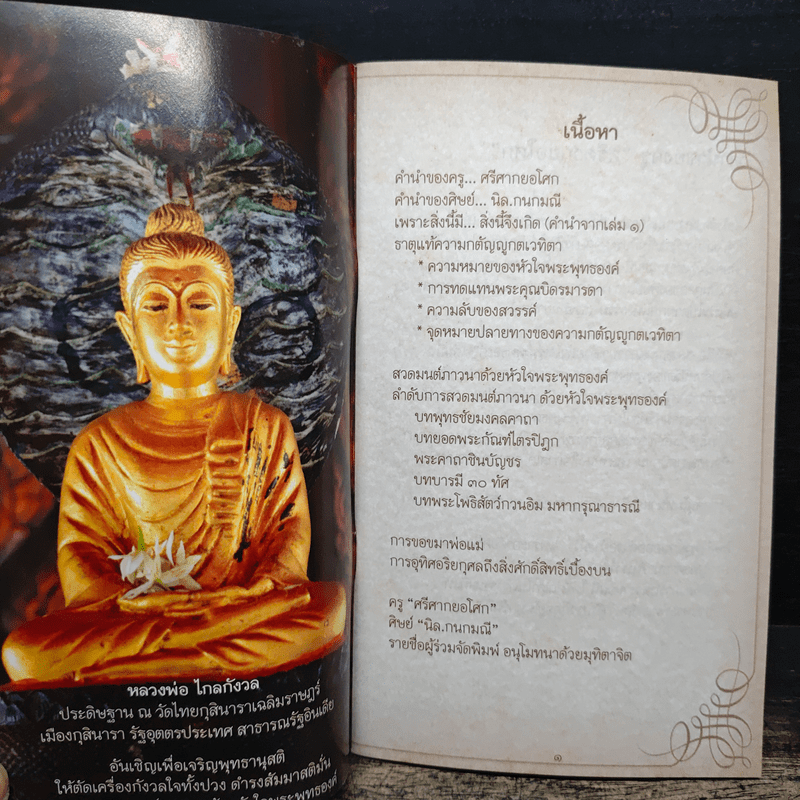 หลวงพ่อ ไกลกังวล
ประดิษฐาน ณ วัดไทยกุสินาราเฉลิมราษฎร์
เมืองกุสินารา รัฐอุตตรประเทศ สาธารณรัฐอินเดีย
อันเชิญเพื่อเจริญพุทธานุสติ
ให้ตัดเครื่องกังวลใจทั้งปวง ดำรงสัมมาสติมั่น
เนื้อหา
คำนำของครู... ศรีศากยอโศก
คำนำของศิษย์... นิล.กนกมณี
เพราะสิ่งนี้มี... สิ่งนี้จึงเกิด (คำนำจากเล่ม ๑)
ธาตุแท้ความกตัญญูกตเวทิตา
* ความหมายของหัวใจพระพุทธองค์
* การทดแทนพระคุณบิดรมารดา
* ความลับของสวรรค์
* จุดหมายปลายทางของความกตัญญูกตเวทิตา
สวดมนต์ภาวนาด้วยหัวใจพระพุทธองค์
ลำดับการสวดมนต์ภาวนา ด้วยหัวใจพระพุทธองค์
บทพุทธชัยมงคลคาถา
บทยอดพระกัณฑ์ไตรปิฎก
พระคาถาชินบัญชร
บทบารมี ๓๐ ทัศ
บทพระโพธิสัตว์กวนอิม มหากรุณาธารณี
การขอขมาพ่อแม่
การอุทิศอริยกุศลถึงสิ่งศักดิ์สิทธิ์เบื้องบน
ครู “ศรีศากยอโศก”
ศิษย์ “นิล.กนกมณี”
รายชื่อผู้ร่วมจัดพิมพ์ อนุโมทนาด้วยมุทิตาจิต
๑